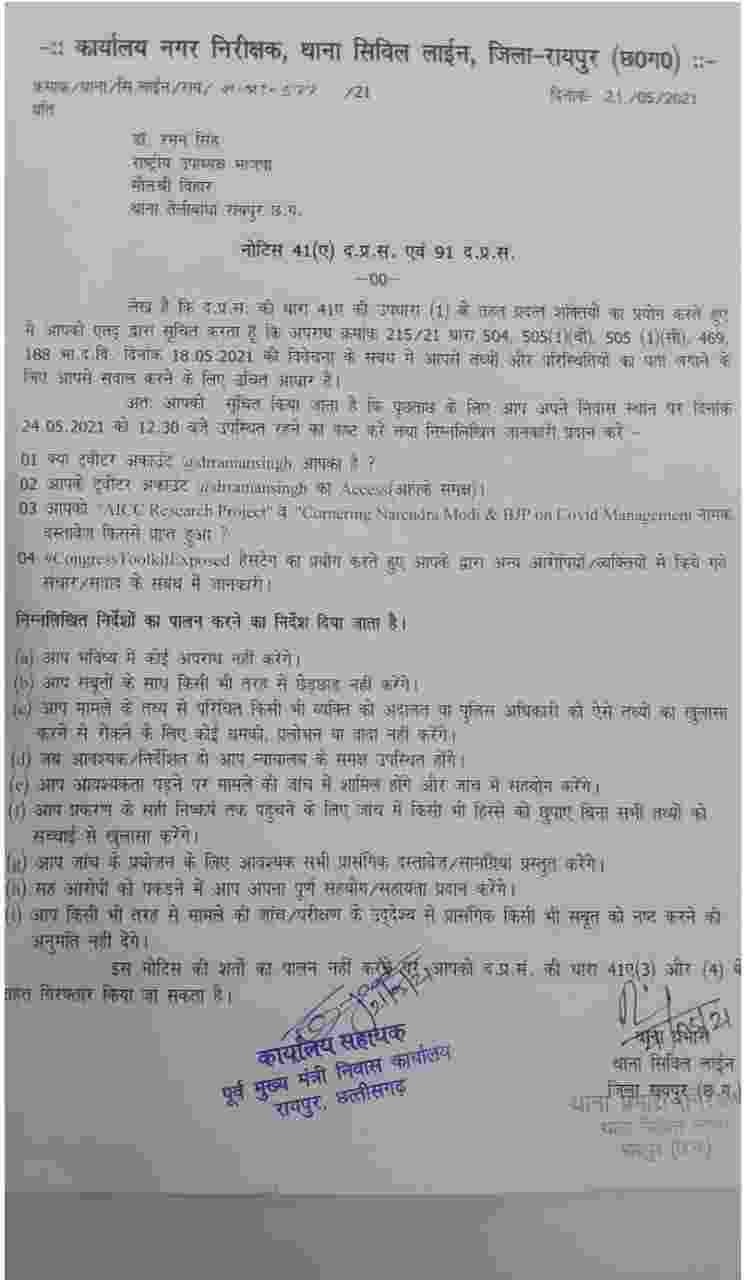 -:: कार्यालय नगर निरीक्षक, थाना सिविल लाईन, जिला-रायपुर (छ0ग0) ::-
क्रमांक/थाना/सि.लाईन/राय/ /21
दिनांक- 21/05/2021
प्रति
डॉ. रमन सिंह
राष्ट्रीय उपाध्यक्ष भाजपा
मौलश्री विहार
थाना तेलीबांधा रायपुर छ.ग.
नोटिस 41(ए) द.प्र.स. एवं 91 द.प्र.स.
-00-
लेख है कि द.प्र.स. की धारा 41ए की उपधारा (1) के तहत प्रदत्त शक्तियों का प्रयोग करते हुए
मै आपको एतद् द्वारा सूचित करता हूं कि अपराध क्रमांक 215/21 धारा 504, 505(1)(बी), 505 (1)(सी), 469,
188 भा.द.वि. दिनांक 18.05.2021 की विवेचना के संबंध में आपसे तथ्यों और परिस्थितियों का पता लगाने के
लिए आपसे सवाल करने के लिए उचित आधार है।
अतः आपको सूचित किया जाता है कि पूछताछ के लिए आप अपने निवास स्थान पर दिनांक
24.05.2021 को 12.30 बजे उपस्थित रहने का कष्ट करें तथा निम्नलिखित जानकारी प्रदान करें -
01 क्या ट्वीटर अकाउंट @drramansingh आपका है ?
02 आपके ट्वीटर अकाउंट @drramansingh का Access(आपके समक्ष)।
03 आपको "AICC Research Project" व "Cornering Narendra Modi & BJP on Covid Management नामक
दस्तावेज किससे प्राप्त हुआ ?
04 #CongressToolkitExposed हैसटेग का प्रयोग करते हुए आपके द्वारा अन्य आरोपियों/व्यक्तियों से किये गये
संचार/संवाद के संबंध में जानकारी।
निम्नलिखित निर्देशों का पालन करने का निर्देश दिया जाता है।
(a) आप भविष्य में कोई अपराध नहीं करेंगे।
(b) आप सबूतों के साथ किसी भी तरह से छेड़छाड़ नहीं करेंगे।
(c) आप मामले के तथ्य से परिचित किसी भी व्यक्ति को अदालत या पुलिस अधिकारी को ऐसे तथ्यों का खुलासा
करने से रोकने के लिए कोई धमकी, प्रलोभन या वादा नहीं करेंगे।
(d) जब आवश्यक/निर्देशित हो आप न्यायालय के समक्ष उपस्थित होंगे।
(e) आप आवश्यकता पड़ने पर मामले की जांच में शामिल होंगे और जांच में सहयोग करेंगे।
(f) आप प्रकरण के सही निष्कर्ष तक पहुंचने के लिए जांच में किसी भी हिस्से को छुपाए बिना सभी तथ्यों को
सच्चाई से खुलासा करेंगे।
(g) आप जांच के प्रयोजन के लिए आवश्यक सभी प्रासंगिक दस्तावेज/सामग्रियां प्रस्तुत करेंगे।
(h) सह आरोपी को पकड़ने में आप अपना पूर्ण सहयोग/सहायता प्रदान करेंगे।
(i) आप किसी भी तरह से मामले की जांच/परीक्षण के उद्देश्य से प्रासंगिक किसी भी सबूत को नष्ट करने की
अनुमति नहीं देंगे।
इस नोटिस की शर्तो का पालन नहीं करने पर आपको द.प्र.सं. की धारा 41ए(3) और (4) के
तहत गिरफ्तार किया जा सकता है।
कार्यालय सहायक
पूर्व मुख्य मंत्री निवास कार्यालय
रायपुर, छत्तीसगढ़
थाना प्रभारी
थाना सिविल लाईन
जिला रायपुर (छ.ग.)
थाना प्रभारी
थाना सिविल लाईन
रायपुर (छ.ग.)